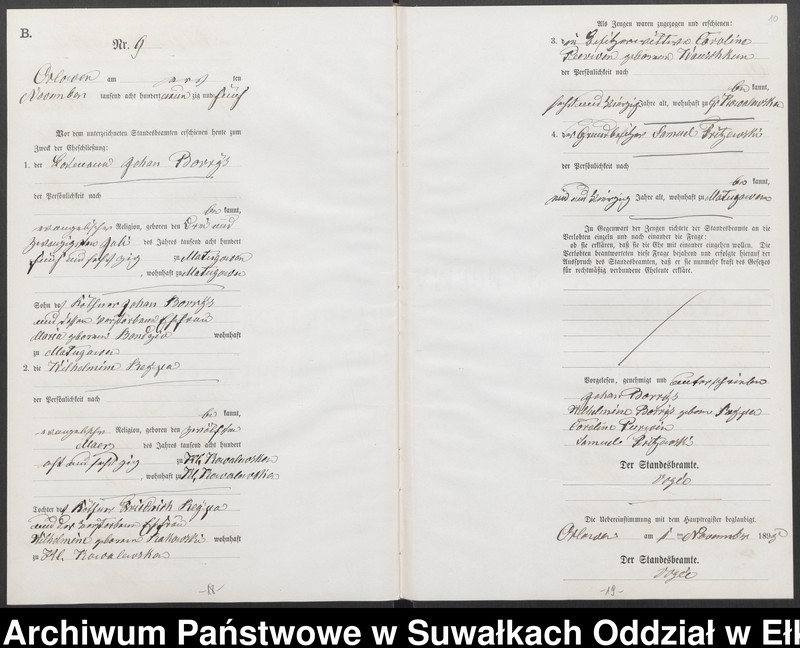 B.
Nr. 9
Orlowen am ten
November tausend acht hundert neun zig und fünf
Vor dem unterzeichneten Standesbeamten erschienen heute zum
Zweck der Eheschließung:
1. der Losmann Johan Borrÿs
der Persönlichkeit nach
kannt,
evangelischer Religion, geboren den Drei und
zwanzigsten Juli des Jahres tausend acht hundert
fünf und sechszig zu Mattugowen
, wohnhaft zu Mattugowen
Sohn des Käthner Johan Borrÿs
und dessen verstorbene Ehefrau
Maria geborene Bondzia wohnhaft
zu Mattugowen
2. die Wilhelmine Regzia
der Persönlichkeit nach
kannt,
evangelischer Religion, geboren den zwölften
Maerz des Jahres tausend acht hundert
acht und sechszig zu Kl. Kowalewsken
, wohnhaft zu Kl. Kowalewsken
Tochter des Käthner Friedrich Regzia
und der verstorbene Ehefrau
Wilhelmine geborene Rakowski wohnhaft
zu Kl. Kowalewsken
-18-
10
Als Zeugen waren zugezogen und erschienen:
3. die Besitzerwittwe Caroline
geborene
der Persönlichkeit nach
kannt,
Jahre alt, wohnhaft zu Kowalewsken
4. der Grundbesitzer Samuel Britzewski
der Persönlichkeit nach
kannt,
und vierzig Jahre alt, wohnhaft zu Mattugowen
In Gegenwart der Zeugen richtete der Standesbeamte an die
Verlobten einzeln und nach einander die Frage:
ob sie erklären, daß sie die Ehe mit einander eingehen wollen. Die
Verlobten beantworteten diese Frage bejahend und erfolgte hierauf der
Ausspruch des Standesbeamten, daß er sie nunmehr kraft des Gesetzes
für rechtmäßig verbundene Eheleute erkläre.
Vorgelesen, genehmigt und unterschrieben
Johan Borrÿs
Wilhelmine Borrÿs geborne Regzia
Caroline
Samuel Britzewski
Der Standesbeamte.
Die Uebereinstimmung mit dem Hauptregister beglaubigt.
Orlowen am November 1895
Der Standesbeamte.
-19-
Archiwum Państwowe w Suwałkach Oddział w Ełk